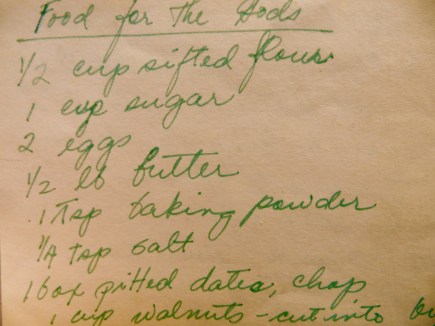 Food for the Gods
1/2 cup sifted flour
1 cup sugar
2 eggs
1/2 lb butter
1 Tsp baking powder
1/4 tsp salt
1 box pitted dates, chop
1 cup walnuts - cut into